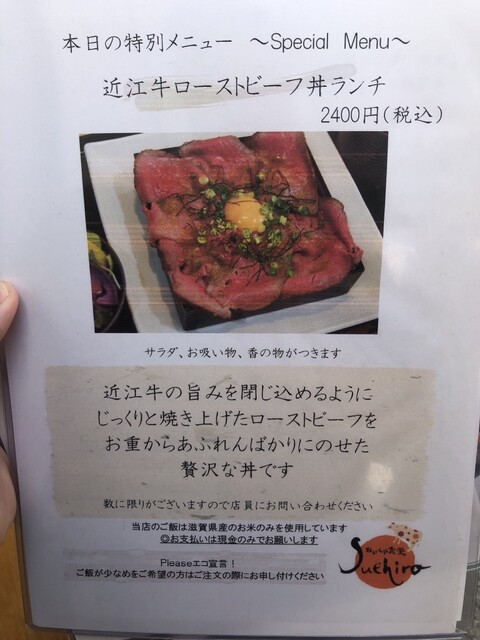 本日の特別メニュー ～Special Menu～
近江牛ローストビーフ丼ランチ
2400円(税込)
サラダ、お吸い物、香の物がつきます
近江牛の旨みを閉じ込めるように
じっくりと焼き上げたローストビーフを
お重からあふれんばかりにのせた
贅沢な丼です
数に限りがございますので店員にお問い合わせください
当店のご飯は滋賀県産のお米のみを使用しています
◎お支払いは現金のみでお願いします
Pleaseエコ宣言！
ご飯が少なめをご希望の方はご注文の際にお申し付けください
Suehiro